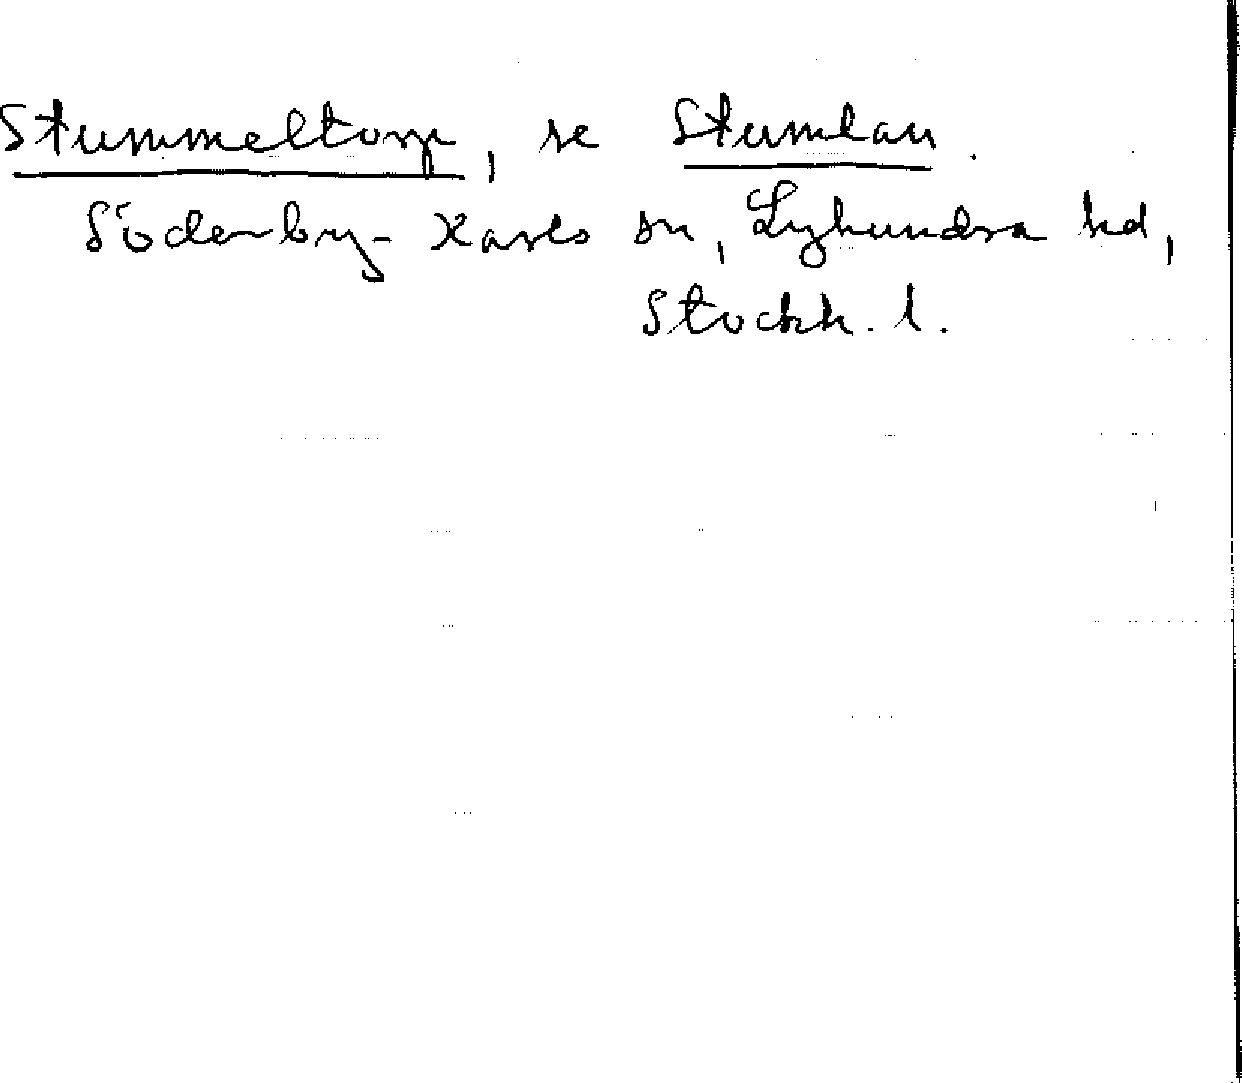 Stummeltorp, se Stumlan.
Söderby-Karls sn, Lyhundra hd,
Stockh. l.